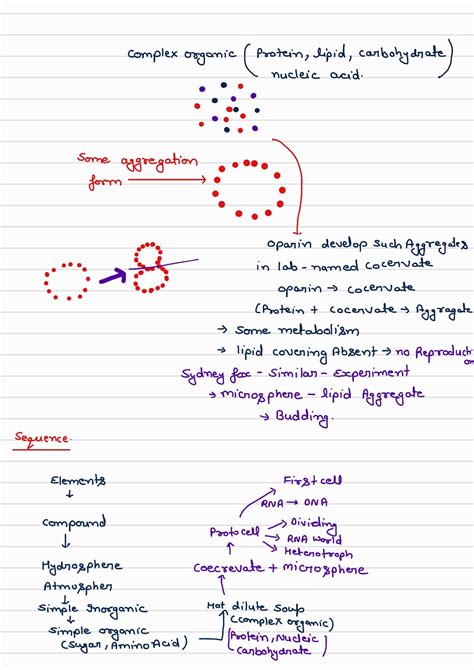 Complex organic (Protein, lipid, carbohydrate)
nucleic acid.
Some aggregation
form
Oparin develop such Aggregates
in lab - named Cocervate
Oparin → cocervate
(Protein + cocervate → Aggragate
→ Some metabolism
→ lipid covering Absent → no Reproduction
Sydney fox - Similar - Experiment
→ microsphere - lipid Aggregate
→ Budding.
Sequence.
Elements
↓
Compound
↓
Hydrosphere
Atmospher
↓
Simple Inorganic
↓
Simple organic
(Sugar, Amino Acid)
First cell
RNA → DNA
Protocell
→ Dividing
→ RNA world
→ Heterotroph
Coecrevate + microsphere
Hot dilute Soup
(complex organic)
(Protein, Nucleic
Carbohydrate)